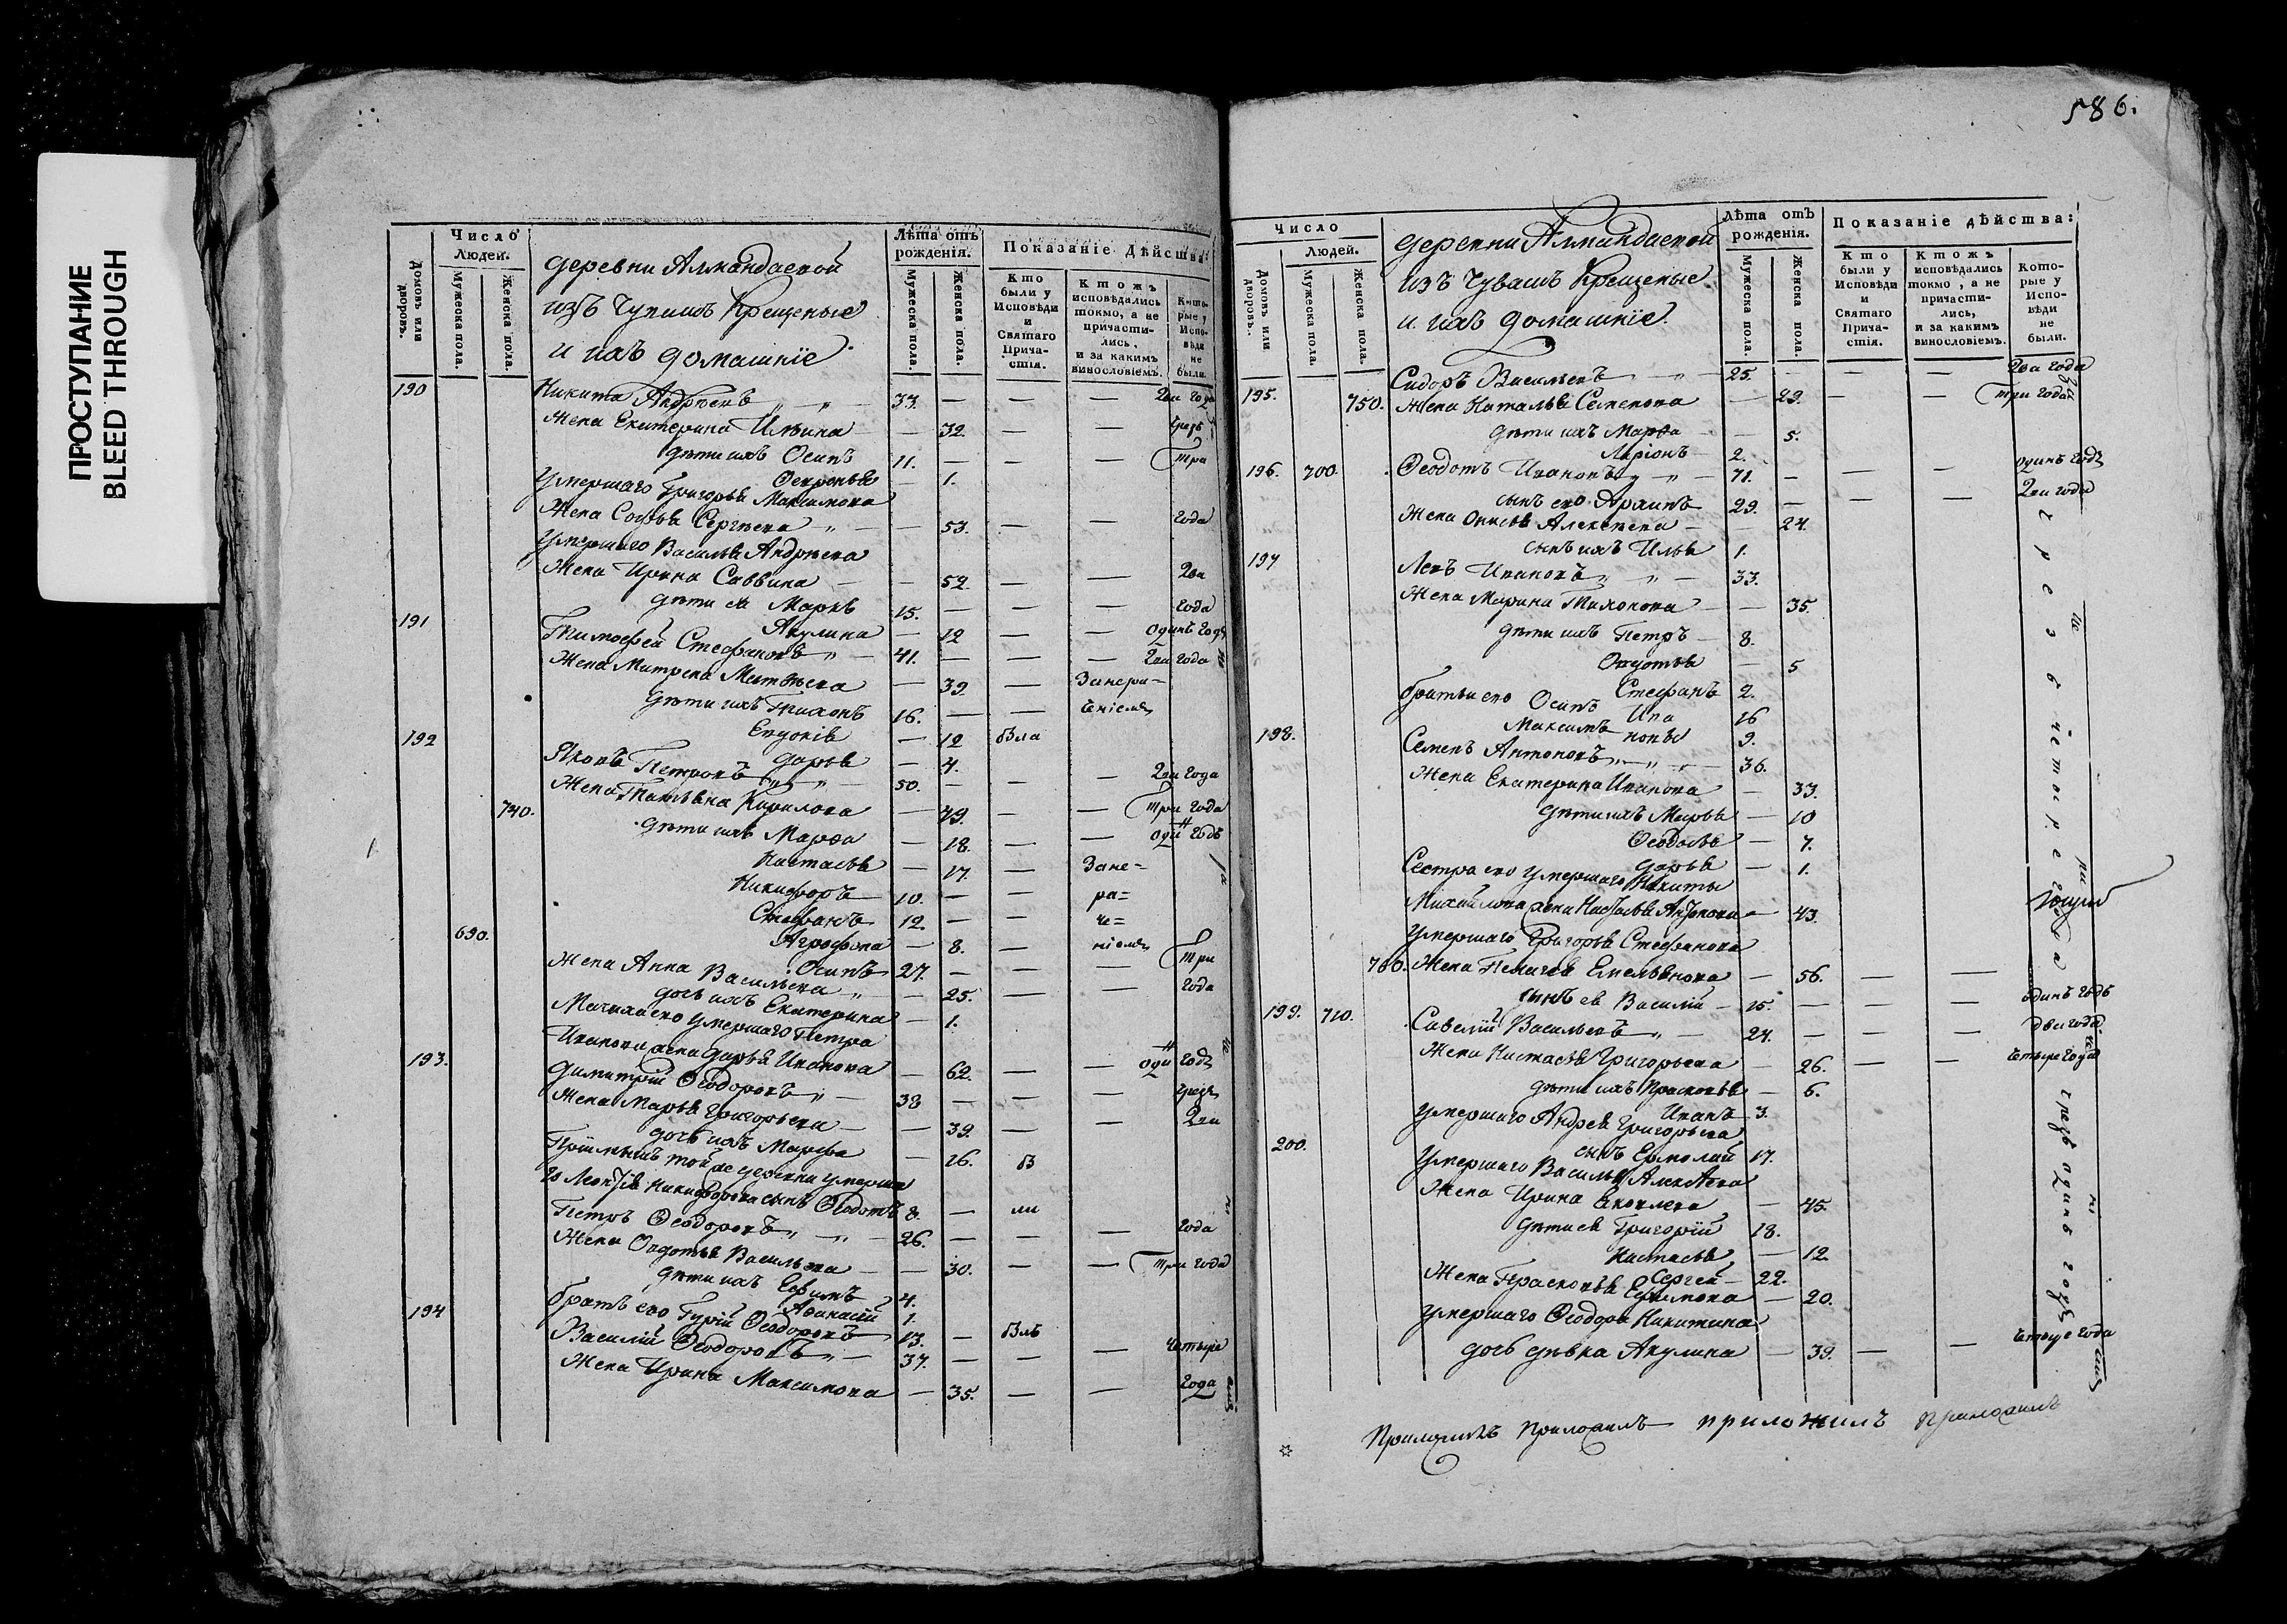 ПРОСТУПАНИЕ
BLEED THROUGH
Число
Людей.
Домовъ или дворовъ.
Мужеска пола.
Женска пола.
деревни Алмандаевой
изъ Чувашъ Крещеные
и ихъ домашніе
Лѣта отъ рожденія.
Мужеска пола.
Женска пола.
Показаніе Дѣйства:
Кто были у Исповѣди и Святаго Причастія.
Ктожъ исповѣдались токмо, а не причастились, и за какимъ винословіемъ.
Которые у Исповѣди не были.
190 Никита Андреевъ 33. — — — два года
Жена Екатерина Ильина — 32. — — чрезъ
дѣти ихъ Осипъ 11. — — — три
Февронья — 1.
Умершаго Григорья Максимова
Жена Софья Сергѣева — 53. — — года
Умершаго Василья Андрѣева
Жена Ирина Саввина — 52. — — два
дѣти ея Маркъ 15. — — — года
Акулина — 12 — — одинъ годъ
191 Тимофей Стефановъ 41. — — — два года
Жена Матрена Матвѣева — 39. — Занера-
дѣти ихъ Тихонъ 16. — — ченіемъ
Евдокія — 12 Бы­ла
Дарья — 4.
192 Яковъ Петровъ 50. — — — два года
740. Жена Татьяна Кирилова — 49. — — три года
дѣти ихъ Марфа — 18. — — одинъ годъ
Настасья — 17. — Зане-
Никифоръ 10. — — ра=
Стефанъ 12. — — че=
Агрофена — 8. — ніемъ
690. Осипъ 27. — — — три
Жена Анна Васильева — 25. — — года
дочь ихъ Екатерина — 1.
Мачиха его умершаго Петра
Иванова жена Дарья Иванова — 62. — — одинъ годъ
193. Димитрій Ѳеодоровъ 38 — — — чрезъ
Жена Марья Григорьева — 39. — — два
дочь ихъ Марфа — 16. Б
Пріимышъ той же деревни умерша
го Леонтія Никифорова сынъ Ѳеодотъ 8. — ли
Петръ Ѳеодоровъ 26. — — — года
Жена Авдотья Васильева — 30. — — три года
дѣти ихъ Ефимъ 4.
Афанасій 1.
братъ его Гурій Ѳеодоровъ 13. — Былъ
194 Василій Ѳеодоровъ 37. — — — четыре
Жена Ирина Максимова — 35. — — года
586.
Число
Людей.
Домовъ или дворовъ.
Мужеска пола.
Женска пола.
деревни Алмандаевой
изъ Чувашъ Крещеные
и ихъ домашніе.
Лѣта отъ рожденія.
Мужеска пола.
Женска пола.
Показаніе дѣйства:
Кто были у Исповѣди и Святаго Причастія.
Ктожъ исповѣдались токмо, а не причастились, и за какимъ винословіемъ.
Которые у Исповѣди не были.
195. Сидоръ Васильевъ 25. — — — два года
750. Жена Наталья Семенова — 29. — — три года
дѣти ихъ Марфа — 5.
Ларіонъ 2.
196. 700. Ѳеодотъ Ивановъ 71. — — — одинъ годъ
сынъ его 29. — — — два года
Жена Алексѣева — 24.
сынъ ихъ Илья 1.
197 Левъ Ивановъ 33.
Жена Марина Тихонова — 35.
дѣти ихъ Петръ 8.
Авдотья — 5
Стефанъ 2.
братья его Осипъ Ива 16
Максимъ новы 9.
198. Семенъ Антоновъ 36.
Жена Екатерина Иванова — 33.
дѣти ихъ Марья — 10
Ѳеодосья — 7.
Дарья — 1.
Сестра его умершаго Никиты
Михайлова жена Настасья Антонова — 43.
Умершаго Григорья Стефанова
760. Жена Пелагея Емельянова — 56. — —
сынъ ея Василій 15. — — — одинъ годъ
199. 710. Савелій Васильевъ 24. — — — два года
Жена Настасья Григорьева — 26. — — четыре года
дѣти ихъ Прасковья — 6.
Иванъ 3.
Умершаго Андрея Григорьева
сынъ Ермолай 17.
200. Умершаго Василья Алексѣева
Жена Ирина Яковлева — 45.
дѣти ея Григорій 18.
Настасья — 12
Сергей 22.
Жена Прасковья Ефимова — 20.
Умершаго Ѳеодора Никитина
дочь дѣвка Акулина — 39. — — четыре года
чрезъ четыре года
чрезъ одинъ годъ
Приложилъ Приложилъ приложилъ приложилъ